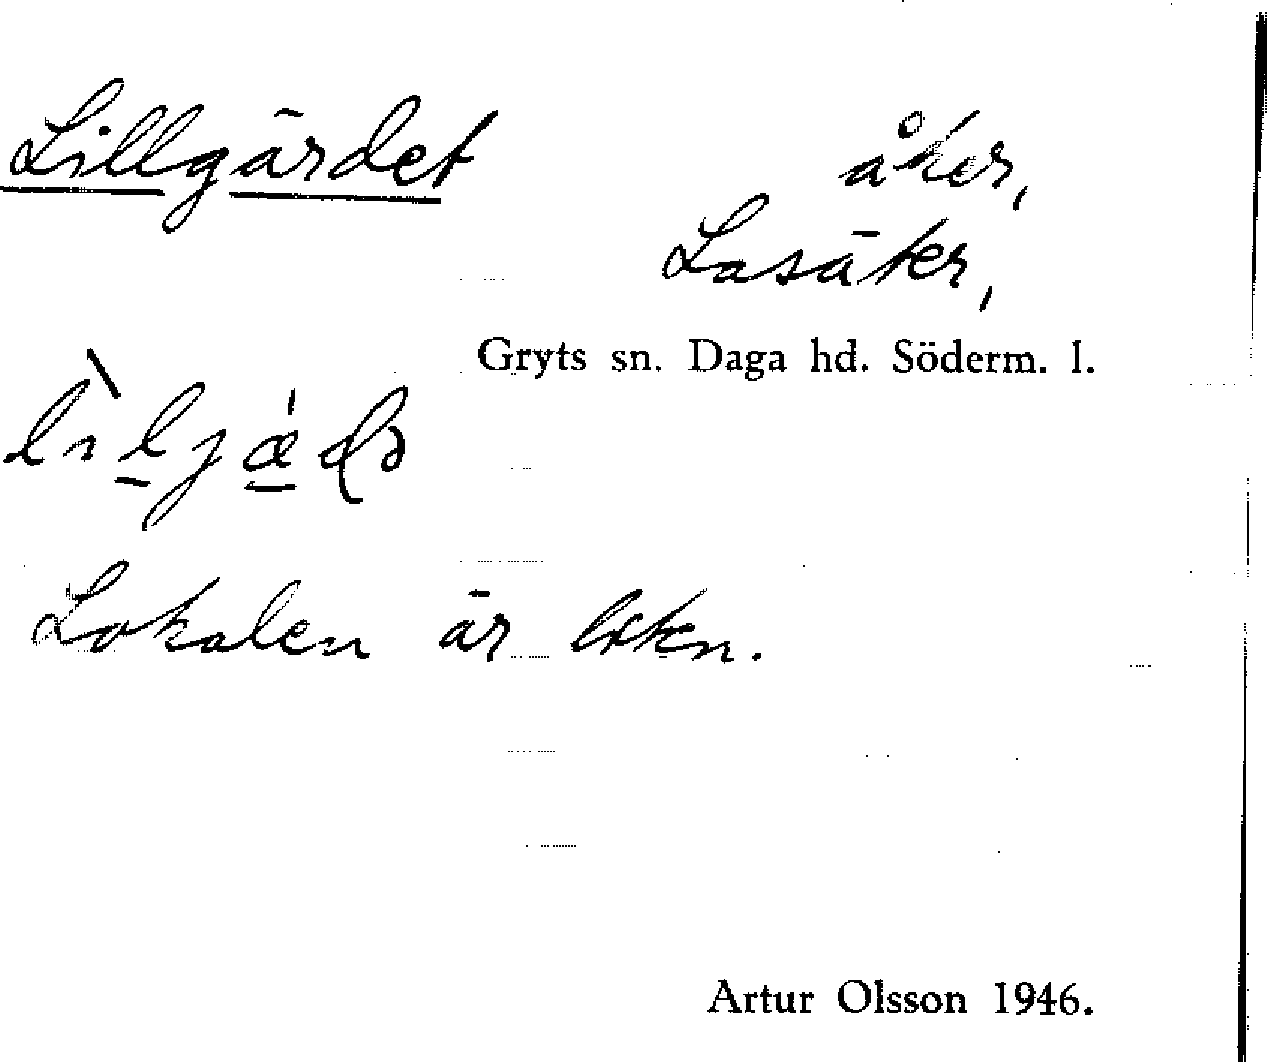 Lillgärdet
åker,
Lasäter,
Gryts sn. Daga hd. Söderm. l.
Lokalen är liten.
Artur Olsson 1946.